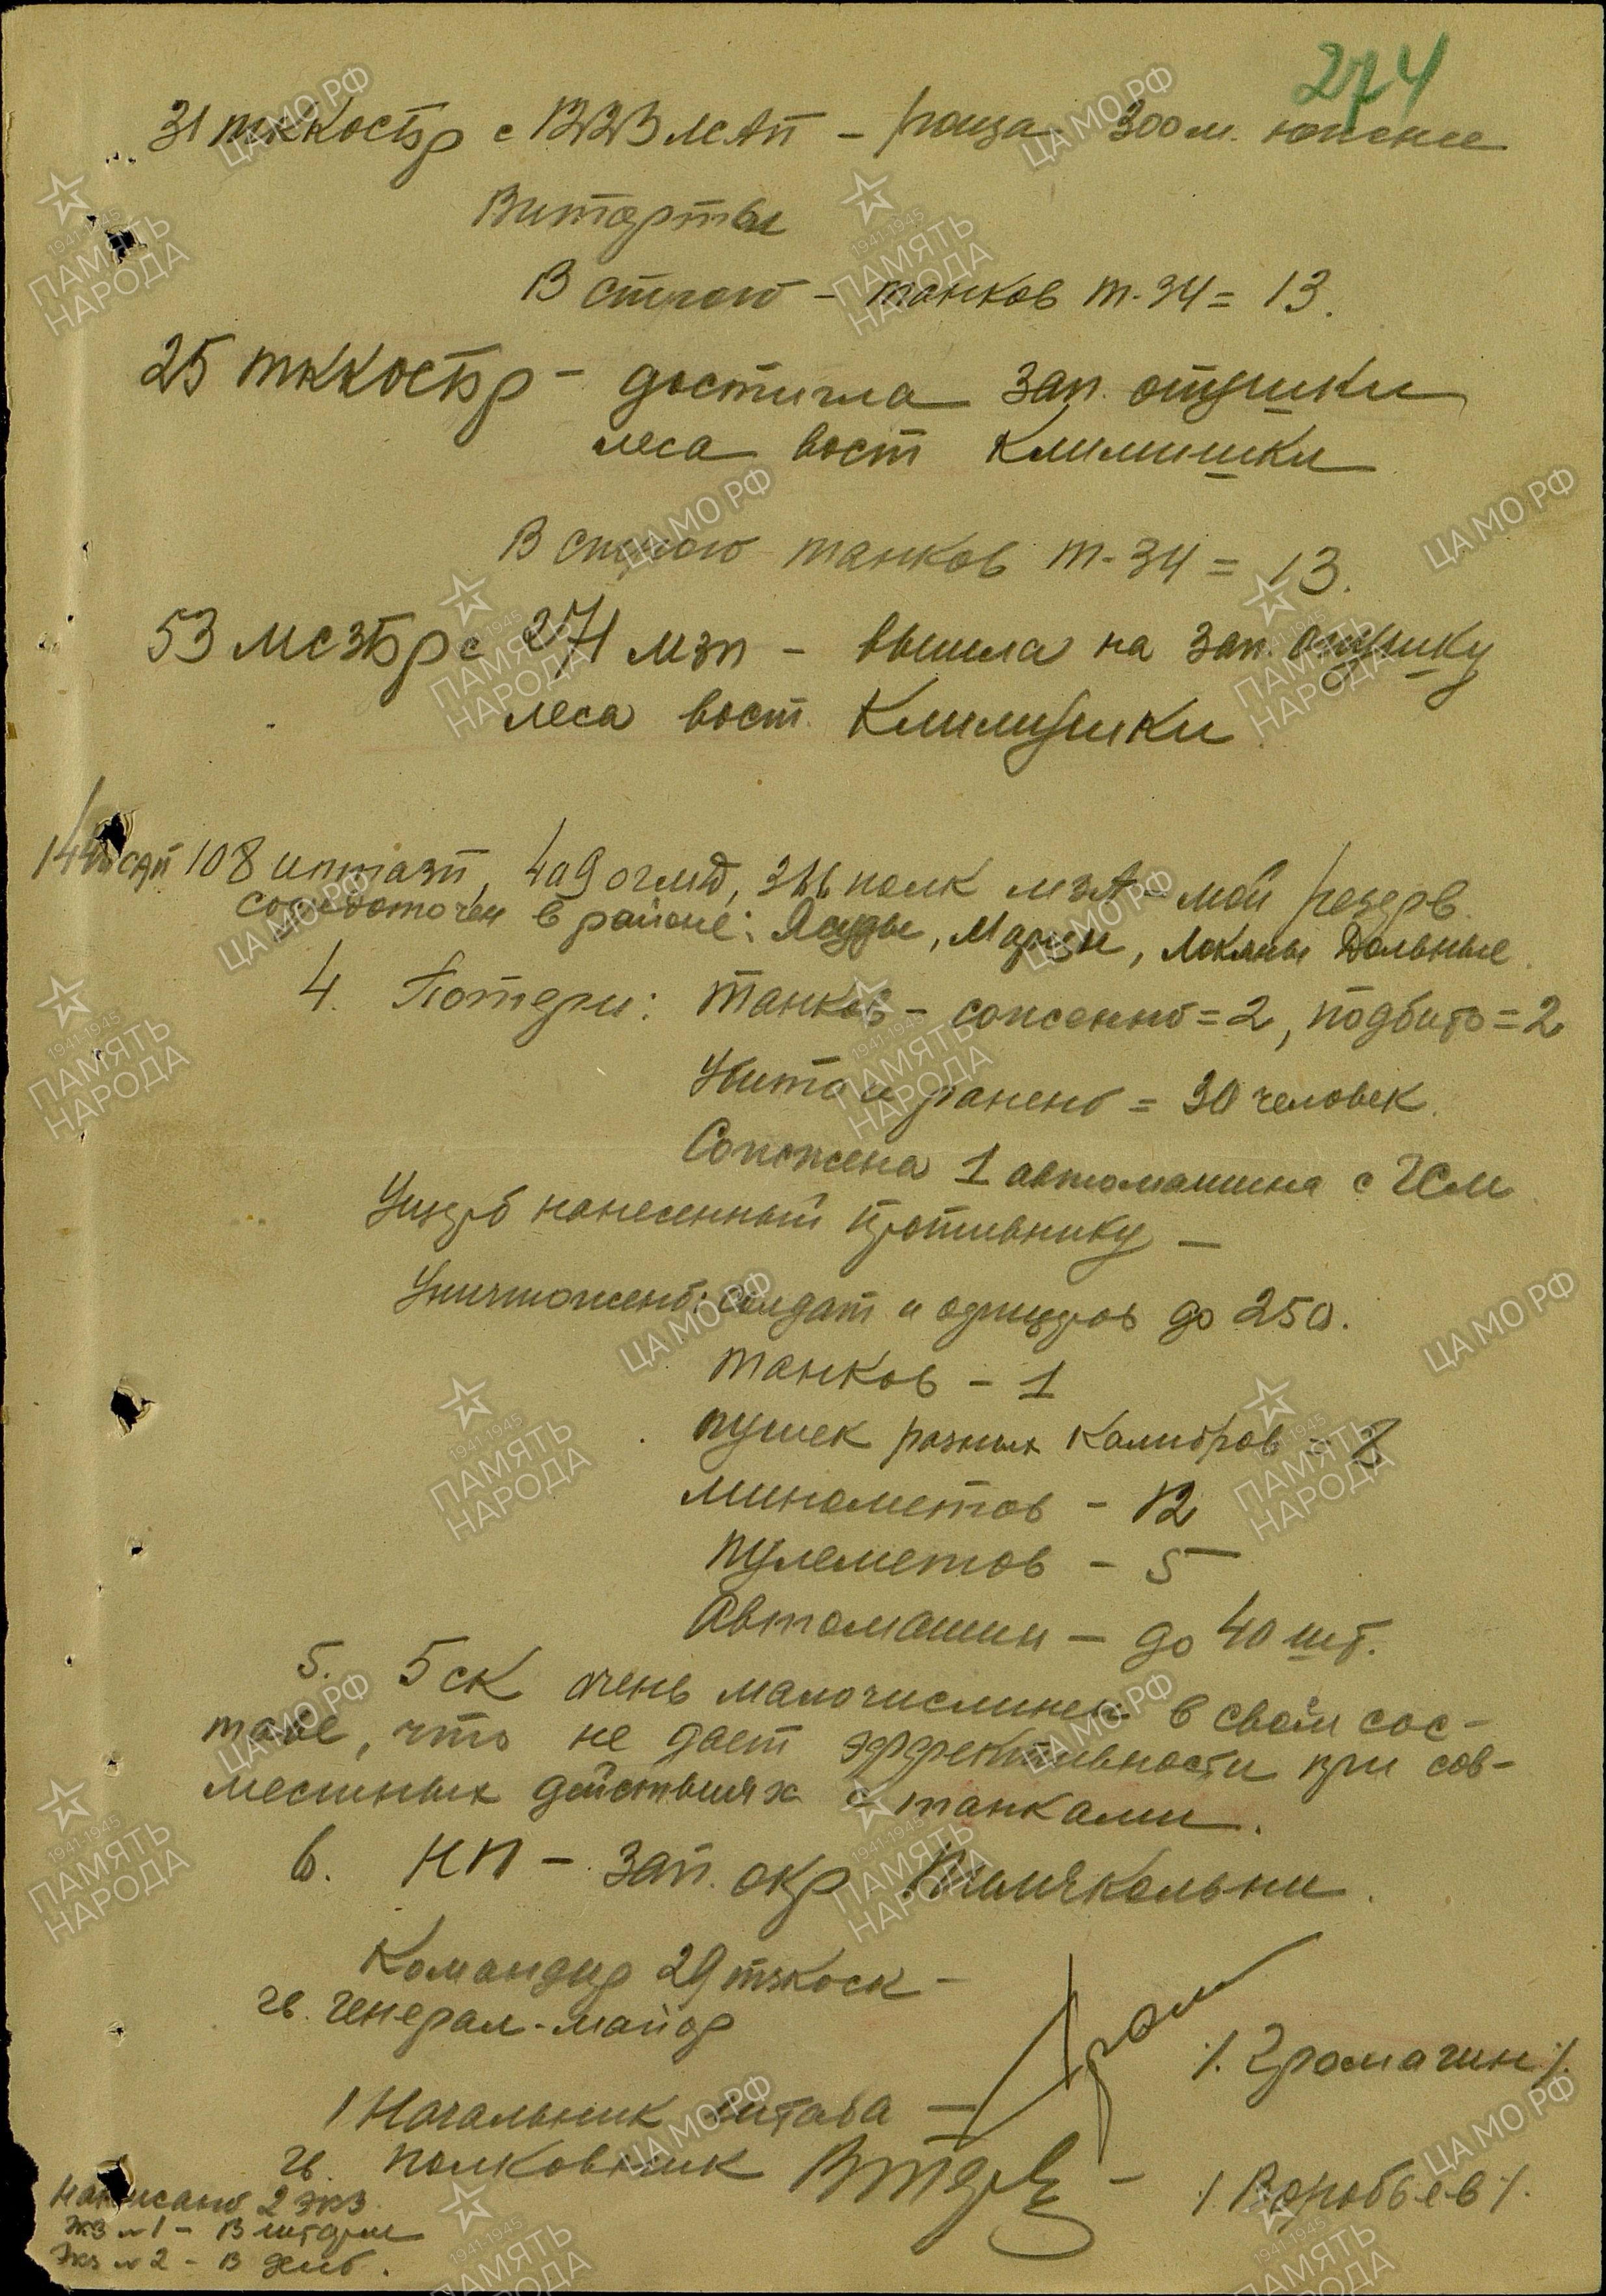 274
31 тккостр с 1223 лсАП – роща 300 м. южнее
Витарты
В строю – танков Т-34 = 13.
25 тккостр – достигла зап. опушки
леса вост Клилишки
В строю танков Т-34 = 13.
53 мсзбр с 271 мзп – вышла на зап. опушку
леса вост. Клилишки
1446 сап 108 иптазп, 409 огмд, 366 полк мзА – мой резерв.
сосредоточен в районе: Ясуды, Марци, Локяны Дольные.
4. Потери: танков – сожженно = 2, подбито = 2
Убито и ранено = 30 человек.
Сожжена 1 автомашина с ГСМ
Ущерб нанесенный противнику –
Уничтожено: солдат и офицеров до 250.
танков – 1
пушек разных калибров – 8
минометов – 12
пулеметов – 5
Автомашин – до 40 шт.
5. 5 ск очень малочислинен в своём сос-
таве, что не дает эффективности при сов-
местных действиях с танками.
6. НП – зап. окр.
Командир 29 тзкоск –
гв. генерал-майор
/. Громагин /.
Начальник штаба –
гв. полковник
– /. Воробьев /.
Написано 2 экз.
Экз №1 – В штарм
Экз №2 – В дело.
ЦАМО РФ
1941-1945
ПАМЯТЬ
НАРОДА